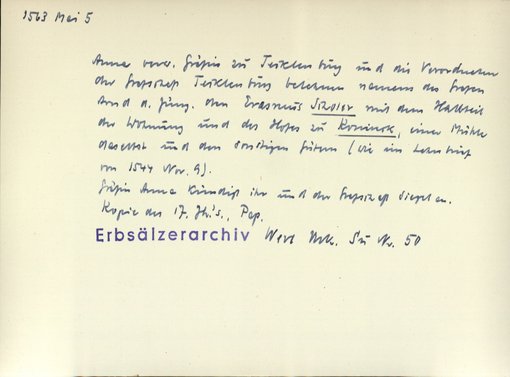 1563 Mai 5
Anna verw. Gräfin zu Tecklenburg und die Verordneten
der Grafschaft Tecklenburg belehnen namens des Grafen
Arnd d. Jüng. den Erasmus Schüler mit dem Halbteil
der Wohnung und des Hofes zu Koninck, einer Mühle
daselbst und den sonstigen Gütern (wie im Lehnbrief
von 1544 Nov. 9).
Gräfin Anna kündigt ihr und der Grafschaft Siegel an.
Kopie des 17. Jh's., Pap.
Erbsälzerarchiv Werl Urk. Nr. 50